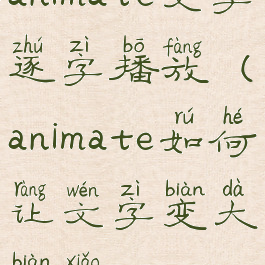 animate
zhú zì bō fàng
逐字播放(
rú hé
animate如何
ràng wén zì biàn dà
让文字变大
biàn xiǎo